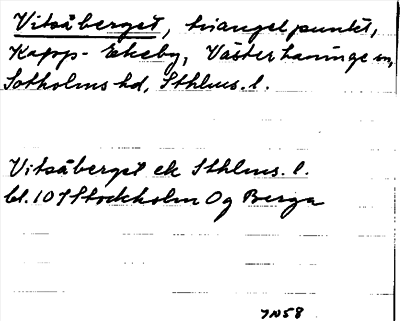 Vitsåberget, triangelpunkt,
Kapp-Ekeby, Västerhaninge sn,
Sotholms hd, Sthlms. l.
Vitsåberget ek Sthlms. l.
bl. 10 I Stockholm Og Berga
JN58